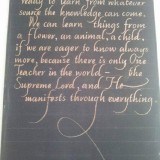 ready to learn from whatever
source the knowledge can come.
We can learn things from
a flower, an animal, a child,
if we are eager to know always
more, because there is only One
Teacher in the world - the
Supreme Lord, and He
manifests through everything.